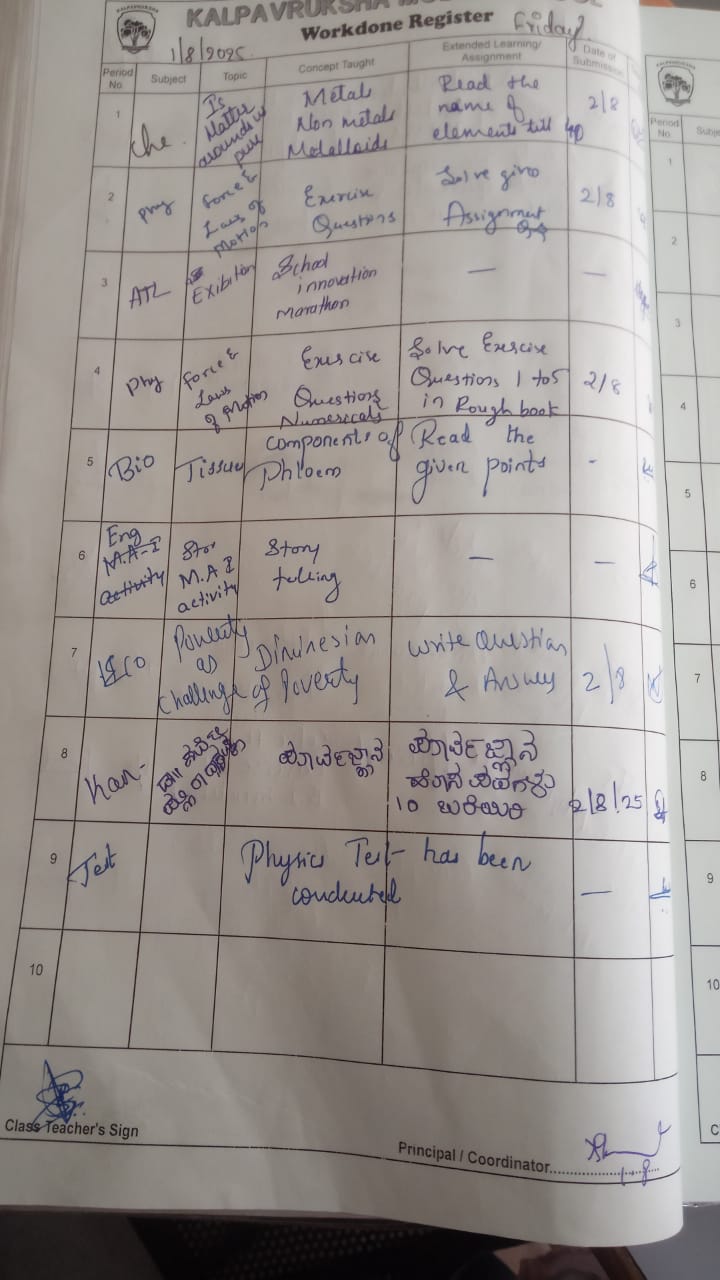 KALPAVRUKSHA
Workdone Register
Friday
1/8/2025
Period No
Subject
Topic
Concept Taught
Extended Learning/ Assignment
Date of Submission
1
Che.
Is
Matter
arounds us
pure
Metals
Non metals
Metalloids
Read the
name of
elements till 40
2/8
2
Phy
Force &
Laws of
Motion
Exercise
Questions
Solve given
Assignment
2/8
3
ATL
Exibition
School
innovation
marathon
—
—
4
Phy
Force &
Laws
of Motion
Exercise
Questions
Numericals
Solve Exercise
Questions 1 to 5
in Rough book
2/8
5
Bio
Tissue
components of
Phloem
Read the
given points
-
6
Eng
M.A-I
activity
Stor
M.A I
activity
Story
telling
—
—
7
ECO
Poverty
as
challenge
Diminesian
of Poverty
Write Question
& Answer
2/8
8
Kan-
10
2/8/25
9
Test
Physics Test has been
conducted
—
10
Class Teacher's Sign
Principal / Coordinator
1-8
Period No
Subje
1
2
3
4
5
6
7
8
9
10
C